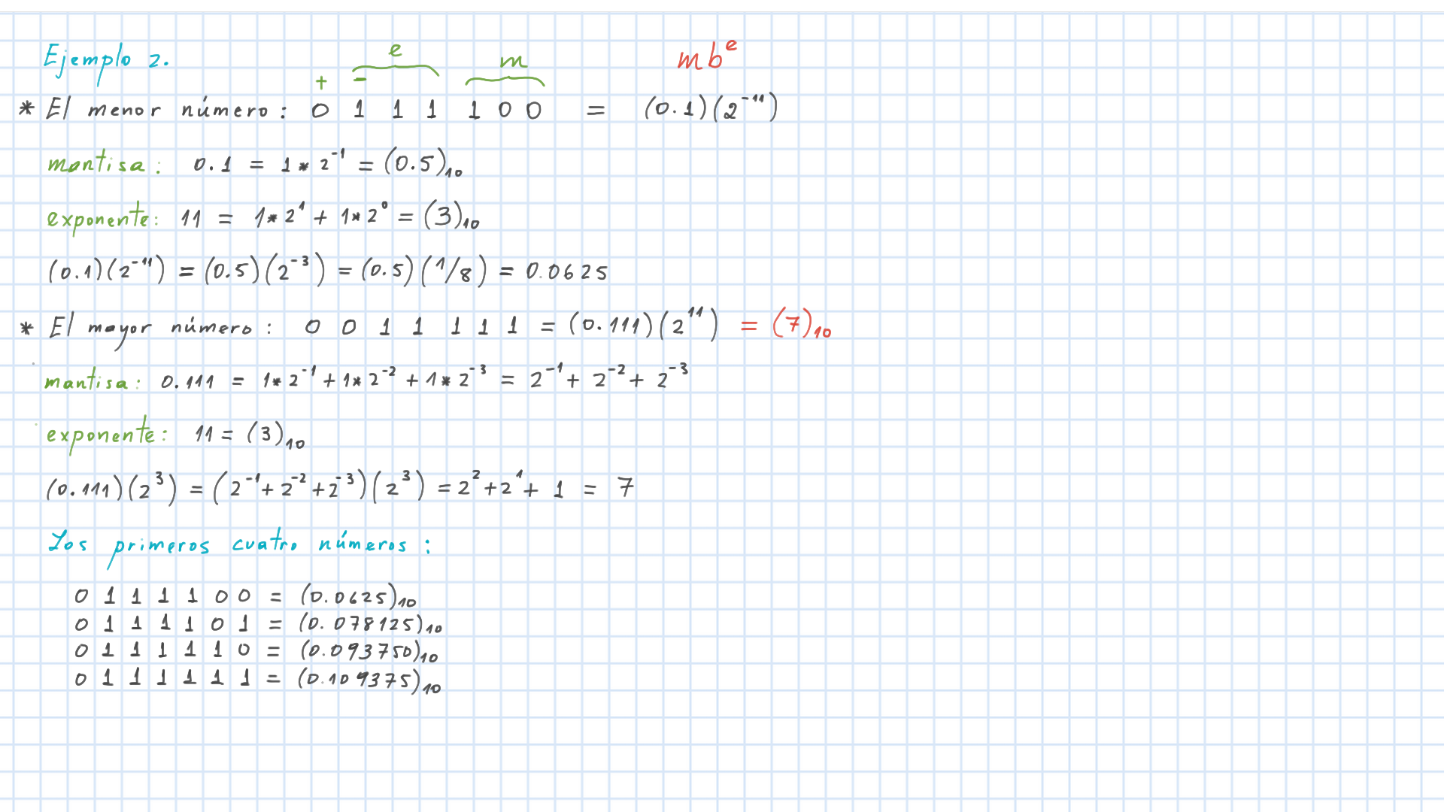 Ejemplo 2.
e m mb^e
+ -
* El menor número: 0 1 1 1 1 0 0 = (0.1)(2^-11)
mantisa: 0.1 = 1*2^-1 = (0.5)₁₀
exponente: 11 = 1*2^1 + 1*2^0 = (3)₁₀
(0.1)(2^-11) = (0.5)(2^-3) = (0.5)(1/8) = 0.0625
* El mayor número: 0 0 1 1 1 1 1 = (0.111)(2^11) = (7)₁₀
mantisa: 0.111 = 1*2^-1 + 1*2^-2 + 1*2^-3 = 2^-1 + 2^-2 + 2^-3
exponente: 11 = (3)₁₀
(0.111)(2^3) = (2^-1 + 2^-2 + 2^-3)(2^3) = 2^2 + 2^1 + 1 = 7
Los primeros cuatro números:
0 1 1 1 1 0 0 = (0.0625)₁₀
0 1 1 1 1 0 1 = (0.078125)₁₀
0 1 1 1 1 1 0 = (0.093750)₁₀
0 1 1 1 1 1 1 = (0.109375)₁₀